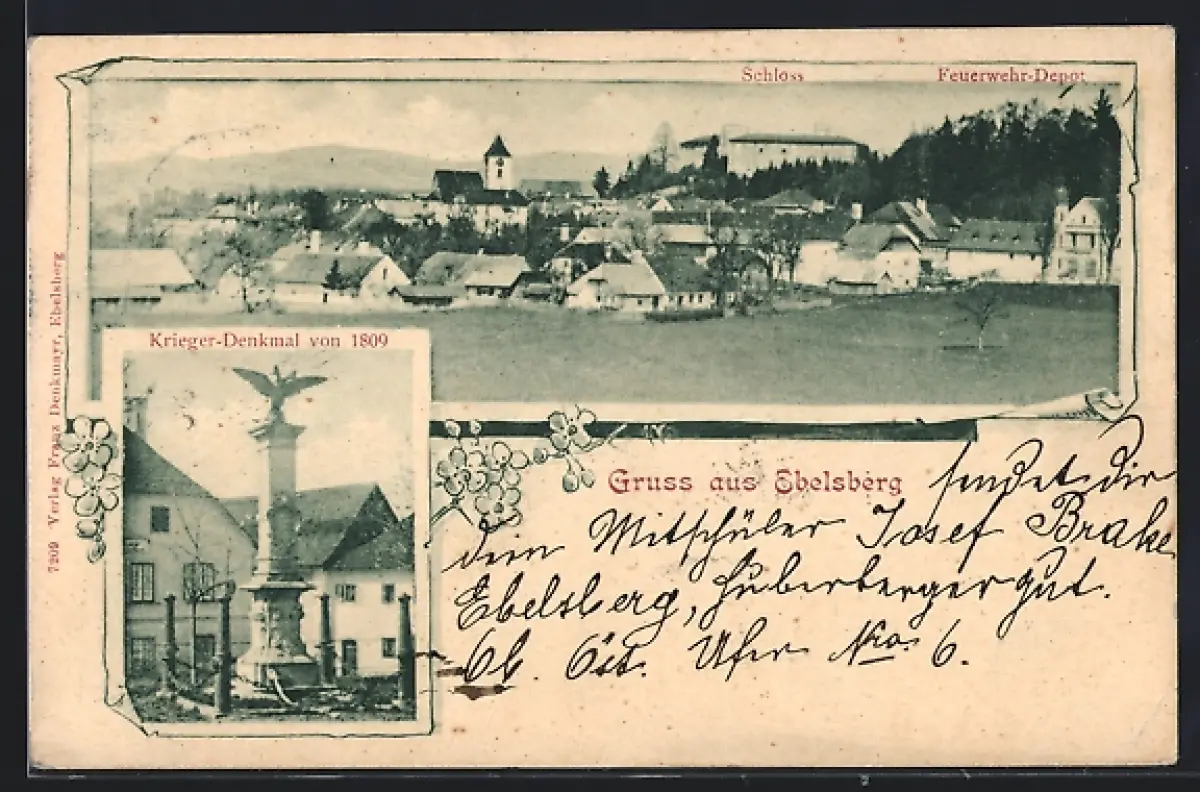 Schloss Feuerwehr-Depot
7209 Verlag Franz Denkmayr, Ebelsberg
Krieger-Denkmal von 1809
Gruss aus Ebelsberg sendet dir
dein Mitschüler Josef Brake
Ebelsberg, Huberbergergut.
Ob. Öst. Ufer Nro. 6.